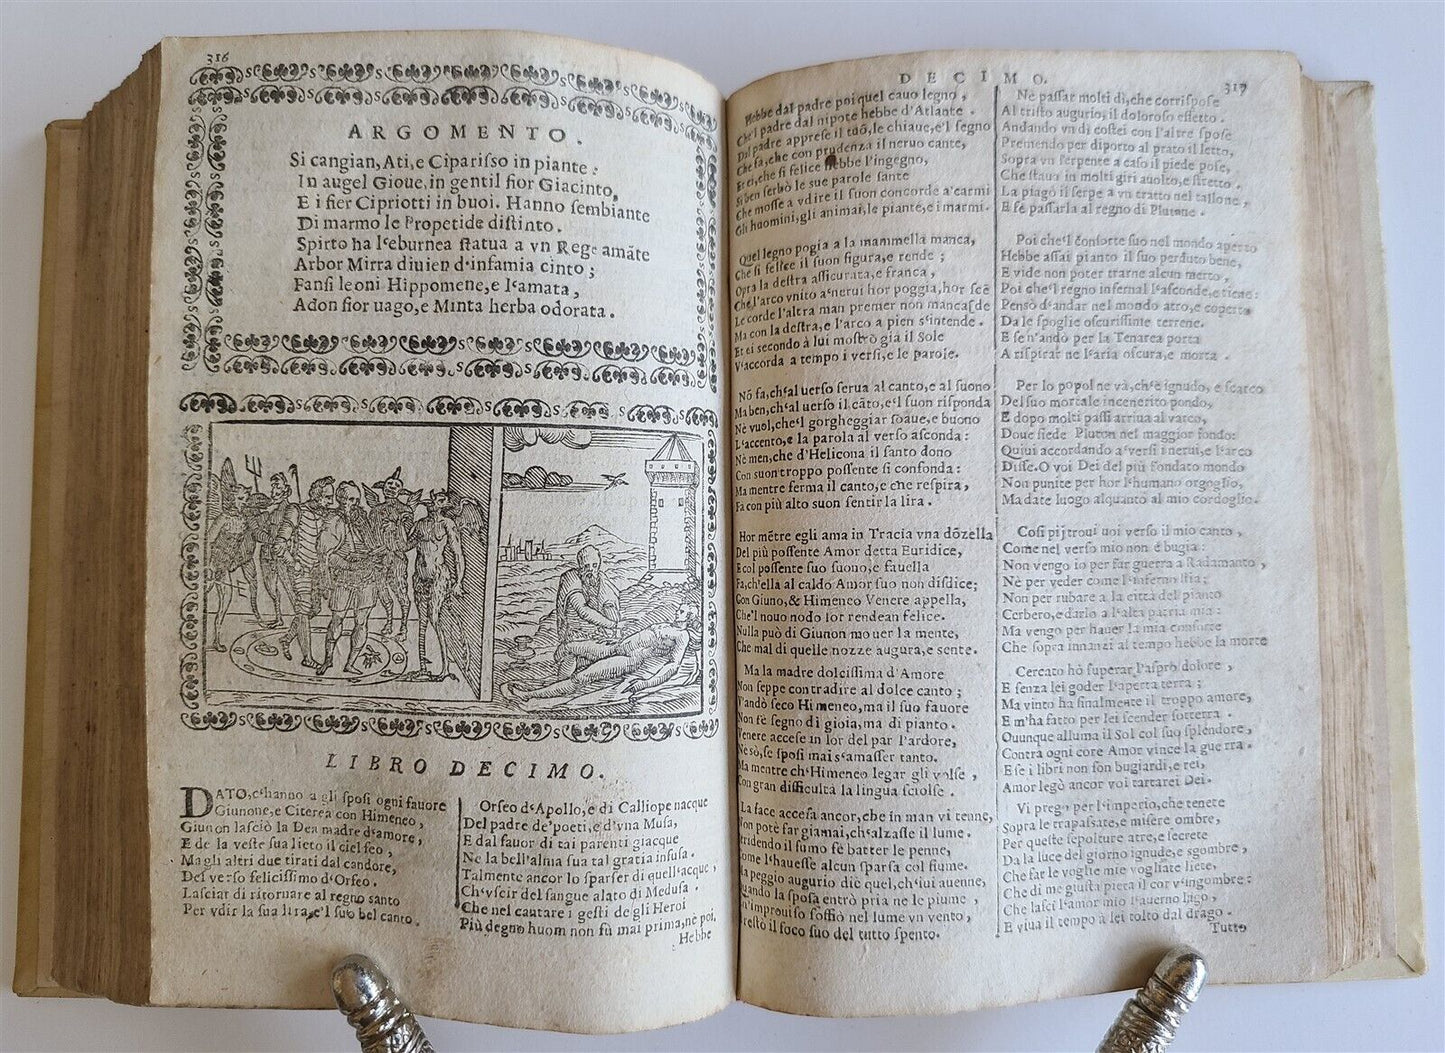 316
ARGOMENTO.
Si cangian, Ati, e Ciparisso in piante:
In augel Gioue, in gentil fior Giacinto,
E i fier Cipriotti in buoi. Hanno sembiante
Di marmo le Propetide distinto.
Spirto ha l'eburnea statua a vn Rege amãte
Arbor Mirra diuien d'infamia cinto;
Fansi leoni Hippomene, e l'amata,
Adon fior uago, e Minta herba odorata.
LIBRO DECIMO.
DATO, c'hanno a gli sposi ogni fauore
Giunone, e Citerea con Himeneo,
Giunon lasciò la Dea madre d'amore,
E de la veste sua lieto il ciel feo,
Ma gli altri due tirati dal candore,
Del verso felicissimo d'Orfeo.
Lasciar di ritornare al regno santo
Per vdir la sua lira, e'l suo bel canto.
Orfeo d'Apollo, e di Calliope nacque
Del padre de'poeti, e d'vna Musa,
E dal fauor di tai parenti giacque
Ne la bell'alma sua tal gratia infusa.
Talmente ancor lo sparser di quell'acque,
Ch'vscir del sangue alato di Medusa.
Che nel cantare i gesti de gli Heroi
Più degno huom non fù mai prima, nè poi,
Hebbe
DECIMO.
317
Hebbe dal padre poi quel cauo legno,
Che'l padre dal nipote hebbe d'Atlante.
Dal padre apprese il tuõ, le chiaue, e'l segno
Che fa, che con prudenza il neruo cante,
Et ei, che sì felice hebbe l'ingegno,
Si ben serbò le sue parole sante
Che mosse a vdire il suon concorde a'carmi
Gli huomini, gli animai, le piante, e i marmi.
Quel legno pogia a la mammella manca,
Che sì felice il suon figura, e rende;
Opra la destra assicurata, e franca,
Che l'arco vnito a'nerui hor poggia, hor scẽ
Le corde l'altra man premer non manca de
Ma con la destra, e l'arco a pien s'intende.
Et ei secondo à lui mostrò già il Sole
V'accorda a tempo i versi, e le parole.
Nõ fa, ch'al verso serua al canto, e al suono
Ma ben, ch'al verso il cãto, e'l suon risponda
Nè vuol, che'l gorgheggiar soaue, e buono
L'accento, e la parola al verso asconda:
Nè men, che d'Helicona il santo dono
Con suon troppo possente si confonda:
Ma mentre ferma il canto, e che respira,
Fa con più alto suon sentir la lira.
Hor mẽtre egli ama in Tracia vna dõzella
Del più possente Amor detta Euridice,
E col possente suo suono, e fauella
Fa, ch'ella al caldo Amor suo non disdice;
Con Giuno, & Himeneo Venere appella,
Che'l nouo nodo lor rendean felice.
Nulla può di Giunon mouer la mente,
Che mal di quelle nozze augura, e sente.
Ma la madre dolcissima d'Amore
Non seppe contradire al dolce canto;
V'andò seco Himeneo, ma il suo fauore
Non fè segno di gioia, ma di pianto.
Venere accese in lor del par l'ardore,
Nè sò, se sposi mai s'amasser tanto.
Ma mentre ch'Himeneo legar gli volse,
Con gran difficultà la lingua sciolse.
La face accesa ancor, che in man vi tenne,
Non potè far giamai, ch'alzasse il lume.
Stridendo il fumo fè batter le penne,
Come l'hauesse alcun sparsa col fiume.
La peggio augurio diè quel, ch'iui auenne,
Quando la sposa entrò pria ne le piume,
Ch'improuiso soffiò nel lume vn vento,
E restò il foco suo del tutto spento.
Nè passar molti dì, che corrispose
Al tristo augurio, il doloroso effetto.
Andando vn dì costei con l'altre spose
Premendo per diporto al prato il letto,
Sopra vn serpente a caso il piede pose,
Che staua in molti giri auolto, e stretto.
La piagò il serpe a vn tratto nel tallone,
E fè passarla al regno di Plutone.
Poi che'l conforte suo nel mondo aperto
Hebbe assai pianto il suo perduto bene,
E vide non poter trarne alcun merto,
Poi che'l regno infernal l'asconde, e tiene:
Pensò d'andar nel mondo atro, e coperto
Da le spoglie oscurissime terrene.
E sen'andò per la Tenarea porta
A rispirar ne l'aria oscura, e morta.
Per lo popol ne và, ch'è ignudo, e scarco
Del suo mortale incenerito pondo,
E dopo molti passi arriua al varco,
Doue siede Pluton nel maggior fondo:
Quiui accordando a'versi i nerui, e l'arco
Disse. O voi Dei del più fondato mondo
Non punite per hor l'humano orgoglio,
Ma date luogo alquanto al mio cordoglio.
Così pij troui uoi verso il mio canto,
Come nel verso mio non è bugia:
Non vengo io per far guerra a Radamanto,
Nè per veder come l'inferno stia;
Non per rubare a la città del pianto
Cerbero, e darlo a l'alta patria mia:
Ma vengo per hauer la mia consorte
Che sopra innanzi al tempo hebbe la morte
Cercato hò superar l'aspro dolore,
E senza lei goder l'aperta terra;
Ma vinto ha finalmente il troppo amore,
E m'ha fatto per lei scender sotterra.
Ouunque alluma il Sol col suo splendore,
Contra ogni core Amor vince la guerra.
E se i libri non son bugiardi, e rei,
Amor legò ancor voi tartarei Dei.
Vi prego per l'imperio, che tenete
Sopra le trapassate, e misere ombre,
Per queste sepolture atre, e secrete
Da la luce del giorno ignude, e sgombre,
Che far le voglie mie vogliate liete,
Che di me giusta pietà il cor v'ingombre:
Che lasci l'amor mio l'auerno lago,
E viua il tempo à lei tolto dal drago.
Tutto